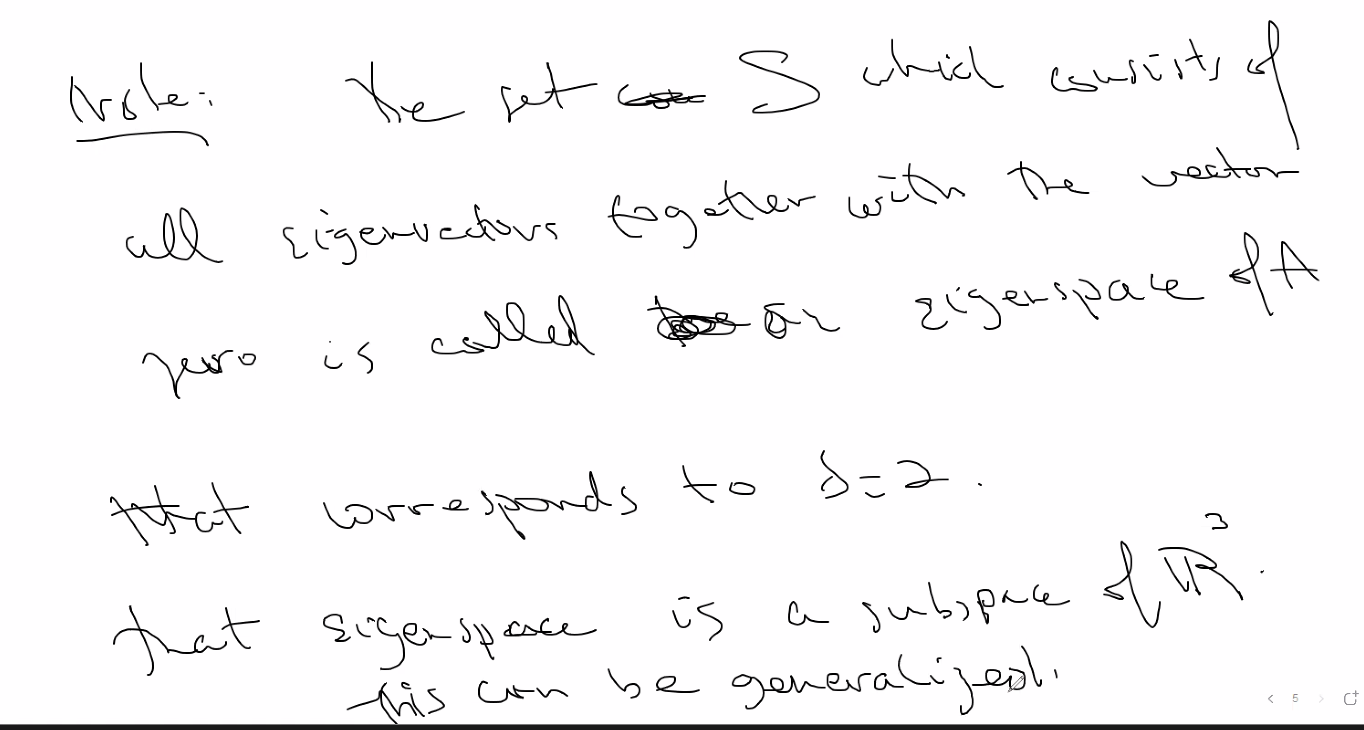 Note: The set S which consists of
all eigenvectors together with the vector
zero is called an eigenspace of A
that corresponds to λ=2.
that eigenspace is a subspace of ℝ³.
this can be generalized.
5